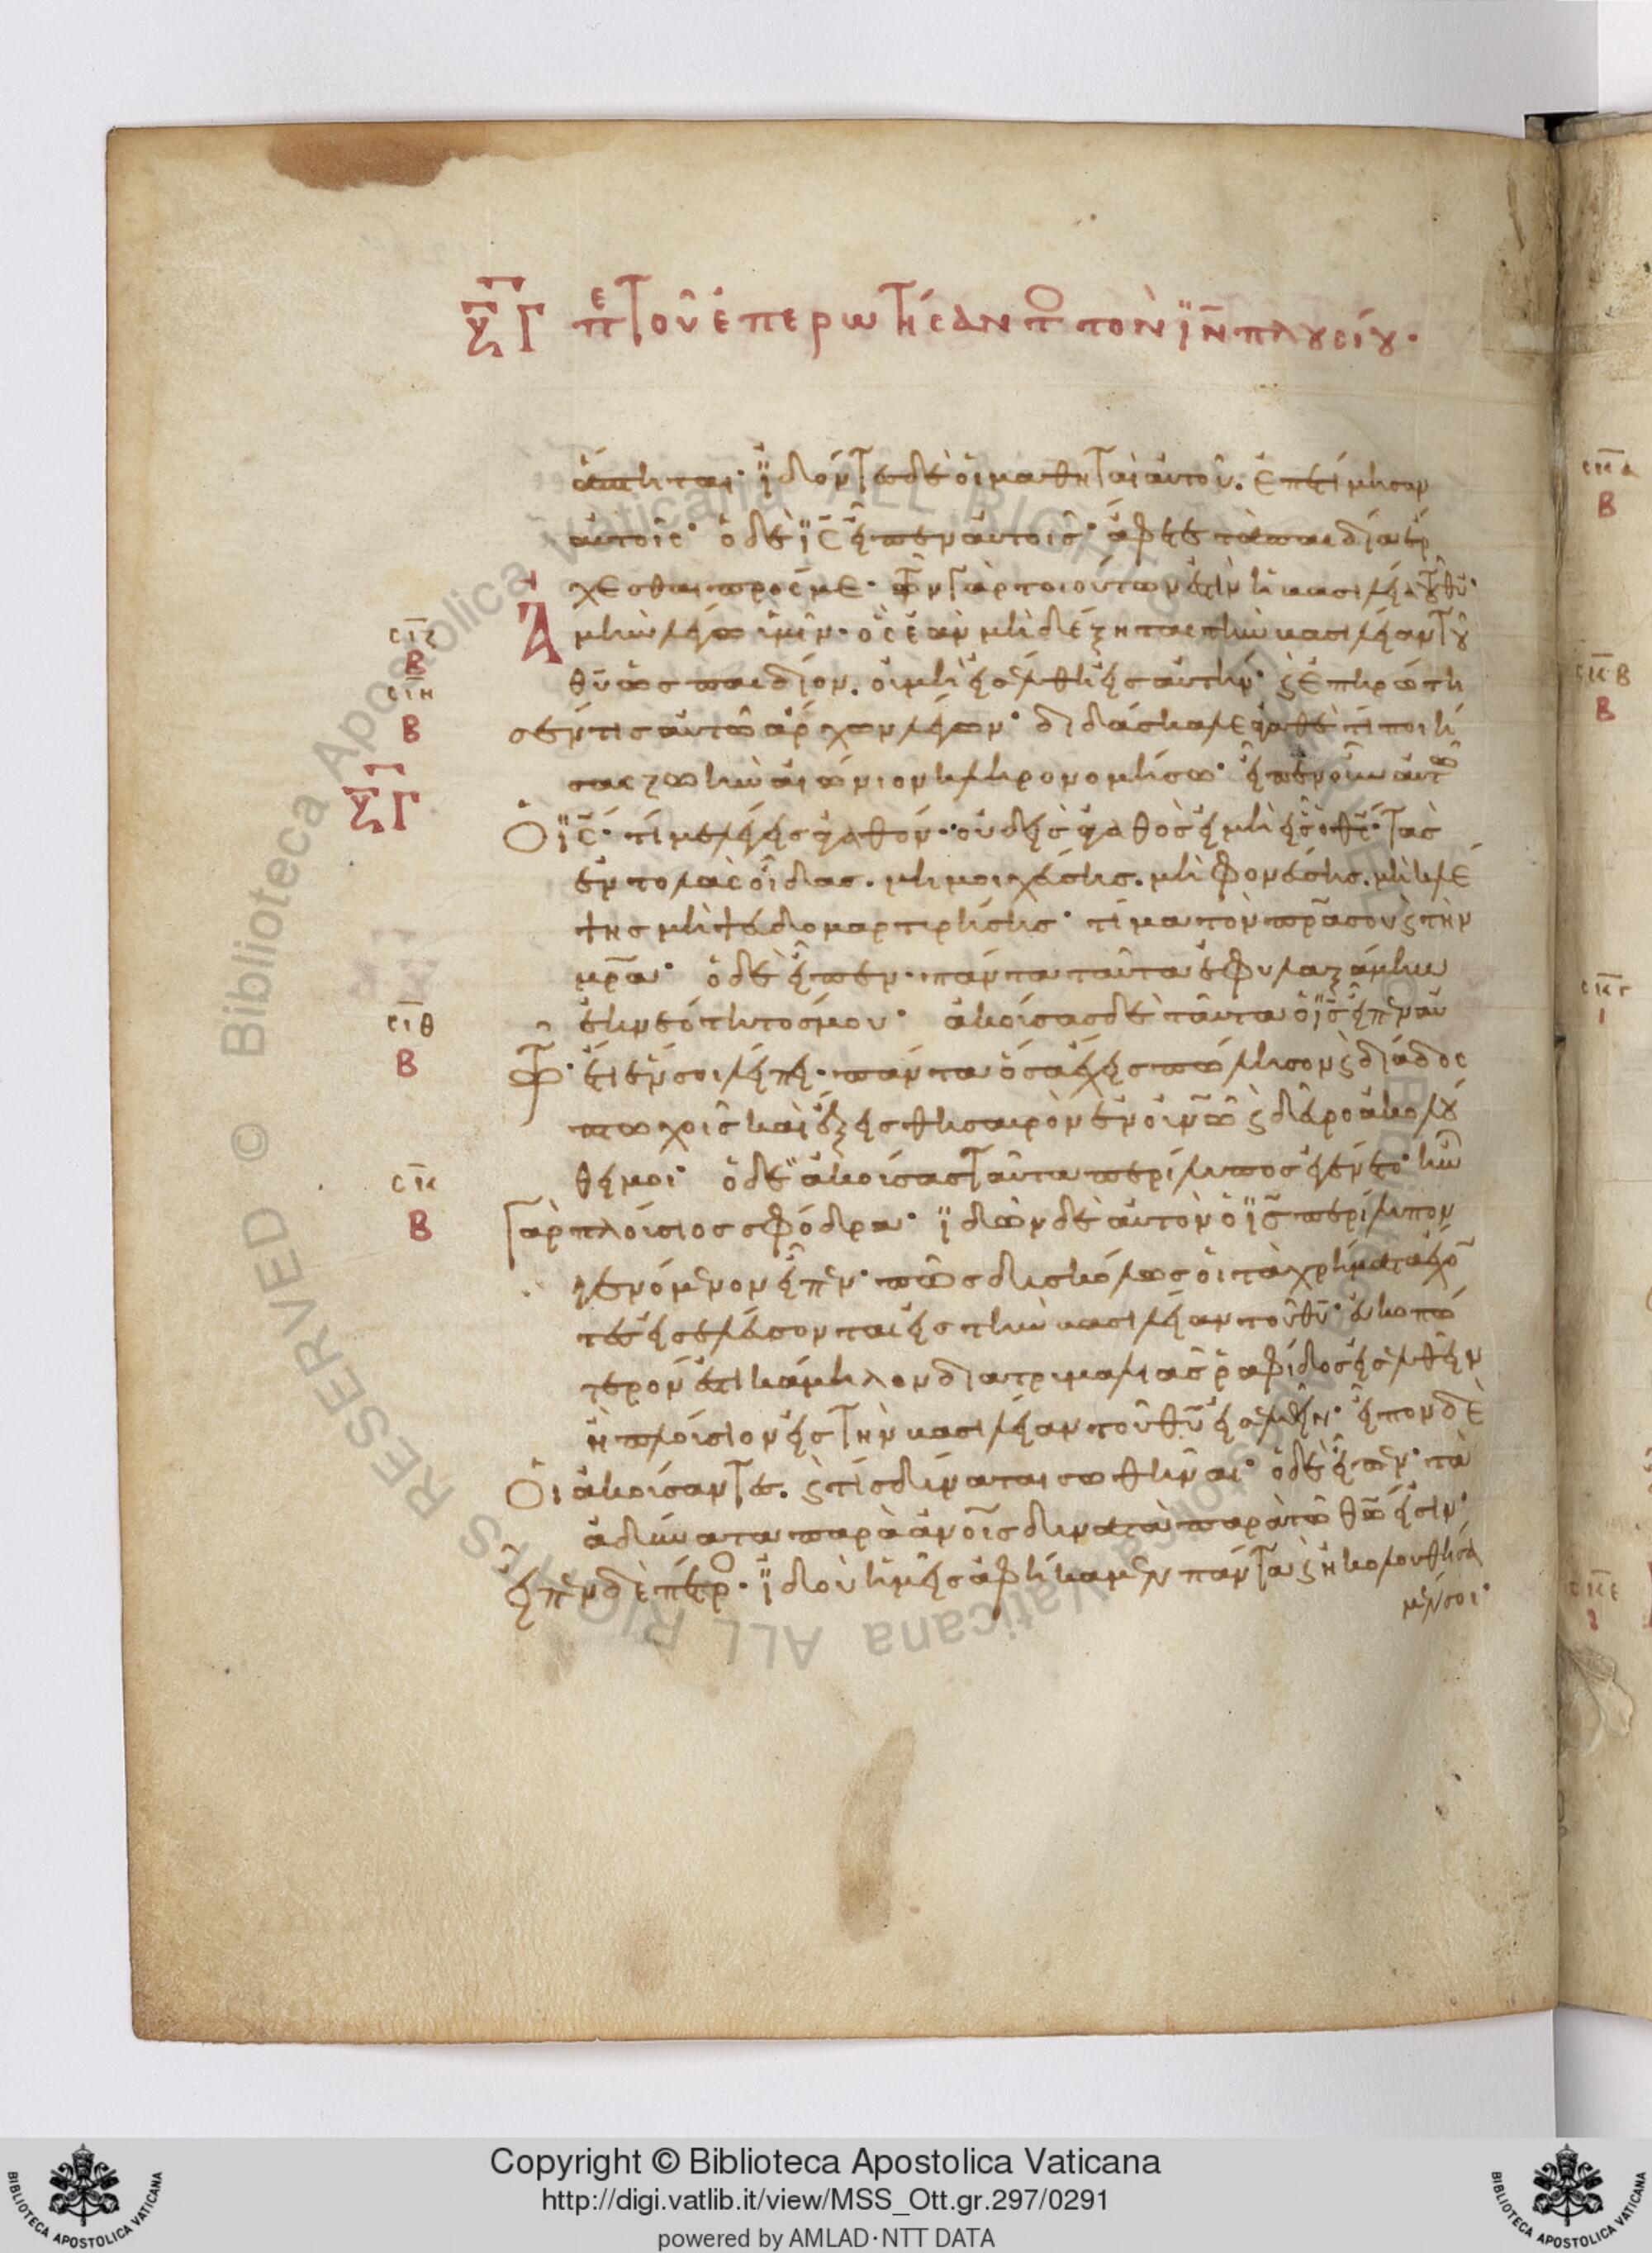 ξγ πε τοῦ ἐπερωτήσαντο τὸν ϊν πλουσίου·
ἅπτηται· ϊδόντες δὲ οἱ μαθηταὶ αὐτοῦ. ἐπετίμησαν
αὐτοῖς· ὁ δὲ ϊς εἶπεν αὐτοῖς· ἄφετε τὰ παιδία ἐρ
χεσθαι πρός με· τῶν γὰρ τοιούτων ἐστὶν ἡ βασιλεία τοῦ θυ·
Ἀ μὴν λέγω ὑμῖν· ὃς ἐὰν μὴ δέξηται τὴν βασιλείαν τοῦ
θυ ὡς παιδίον. οὐ μὴ εἰσέλθη εἰς αὐτήν· ϛ ἐπηρώτη
σέν τις αὐτῶ ἄρχων λέγων· διδάσκαλε ἀγαθὲ τί ποιή
σας ζωὴν αἰώνιον κληρονομήσω· εἶπεν οὖν αὐτῶ
ὁ ϊς· τί με λέγεις ἀγαθόν· οὐδεὶς ἀγαθὸς εἰ μὴ εἷς ὁ θς· τὰς
ἐντολὰς οἶδας. μὴ μοιχεύσης. μὴ φονεύσης. μὴ κλέ
ψης μὴ ψευδομαρτυρήσης· τίμα τὸν πρα σου ϛ τὴν
μρα· ὁ δὲ εἶπεν· πάντα ταῦτα ἐφυλαξάμην
ἐκ νεότητός μου· ἀκούσας δὲ ταῦτα ὁ ϊς εἶπεν αὐ
τῶ· ἔτι ἕν σοι λείπει· πάντα ὅσα ἔχεις πώλησον ϛ διάδος
πτωχοῖς καὶ ἕξεις θησαυρὸν ἐν οὐνω ϛ δεῦρο ἀκολού
θει μοι· ὁ δὲ ἀκούσας ταῦτα περίλυπος ἐγένετο· ἦν
γὰρ πλούσιος σφόδρα· ϊδὼν δὲ αὐτὸν ὁ ϊς περίλυπον
γενόμενον εἶπεν· πῶς δυσκόλως οἱ τὰ χρήματα ἔχον
τες εἰσελεύσονται εἰς τὴν βασιλείαν τοῦ θυ· εὐκοπώ
τερόν ἐστι κάμηλον διὰ τρυμαλιᾶς ῥαφίδος εἰσελθεῖν
ἢ πλούσιον εἰς τὴν βασιλείαν τοῦ θυ εἰσελθεῖν· εἶπον δὲ
οἱ ἀκούσαντες. ϛ τίς δύναται σωθῆναι· ὁ δὲ εἶπεν· τὰ
ἀδύνατα παρὰ ἀνοις δυνατὰ παρὰ τῶ θω ἐστιν·
εἶπεν δὲ πέτρο· ϊδοὺ ἡμεῖς ἀφήκαμεν πάντα ϛ ἠκολουθήσα
μέν σοι·
σιζ
β
σιη
β
ξγ
σιθ
β
σκ
β
σκα
β
σκβ
β
σκγ
σκε
Copyright © Biblioteca Apostolica Vaticana
http://digi.vatlib.it/view/MSS_Ott.gr.297/0291
powered by AMLAD·NTT DATA
BIBLIOTECA APOSTOLICA VATICANA
BIBLIOTECA APOSTOLICA VATICANA
© Biblioteca Apostolica Vaticana ALL RIGHTS RESERVED